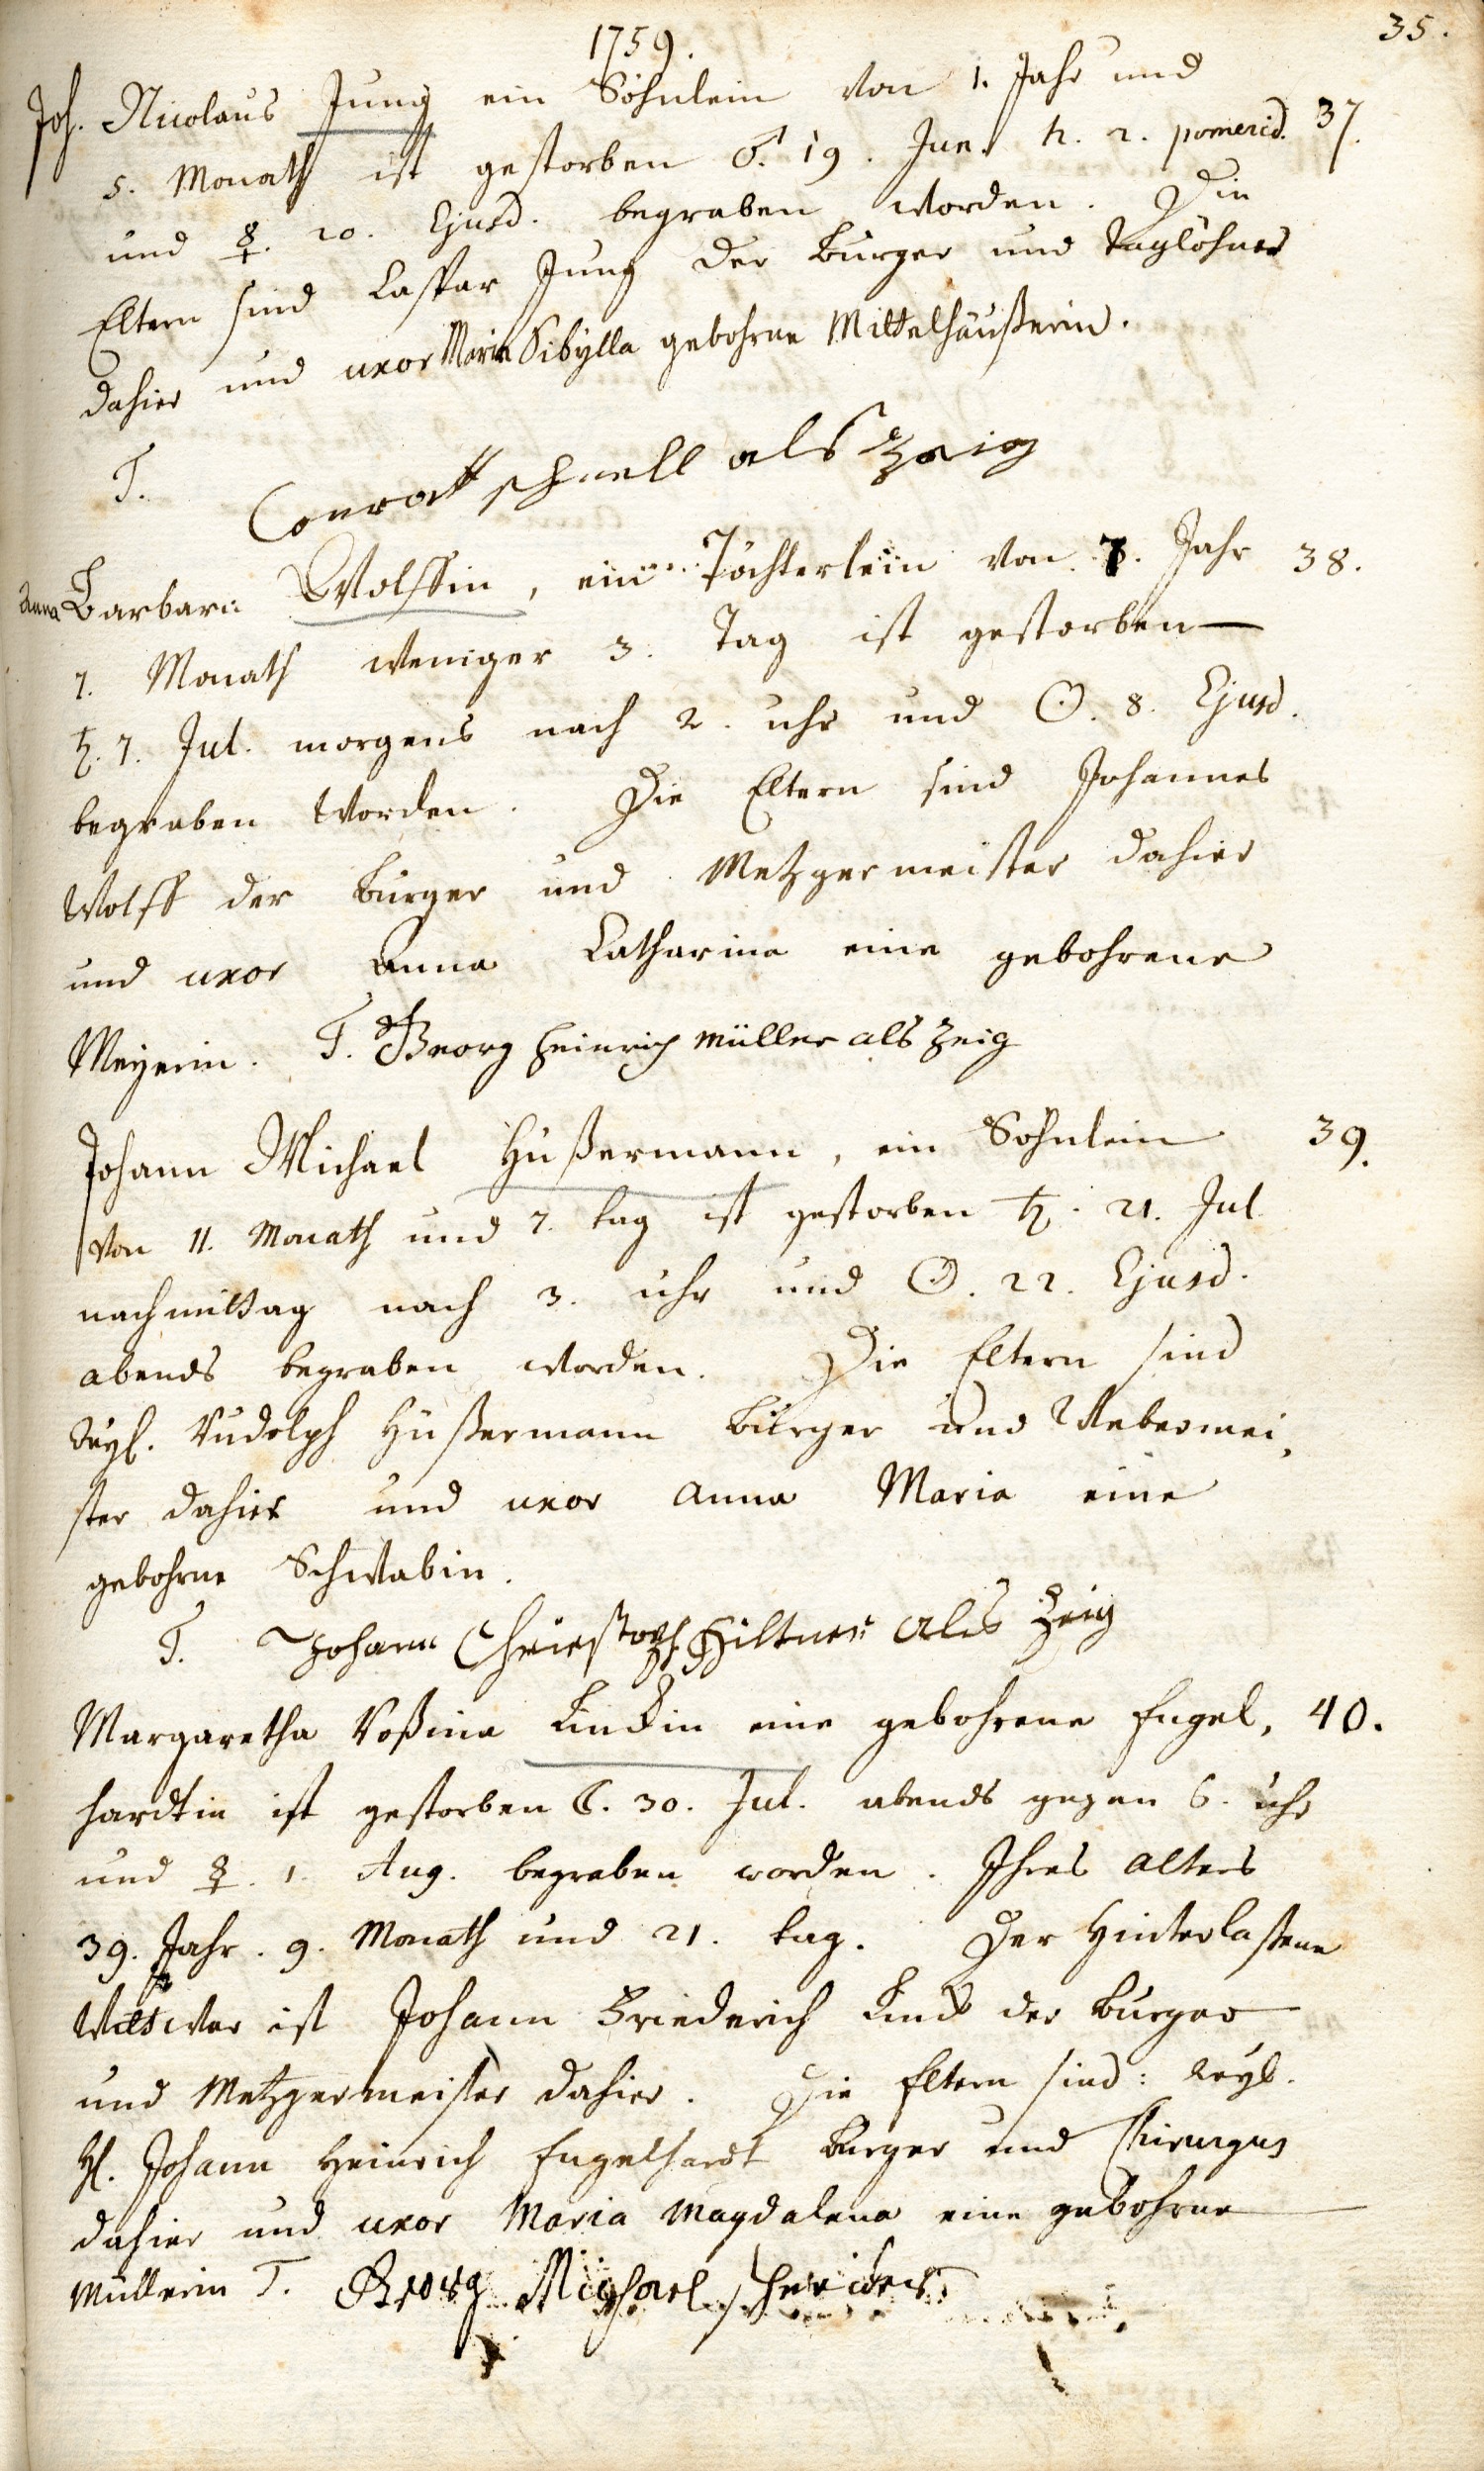 1759.
35.
Joh. Nicolaus Jung ein Söhnlein von 1. Jahr und
5. Monath ist gestorben ♂. 19. Jun. h. 2. pomerid. 37.
und ☿. 20. Ejusd. begraben worden. Die
Eltern sind Caspar Jung der Burger und Taglöhner
dahier und uxor Maria Sibylla gebohrne Mittelhäußerin.
T. Conratt schnell als Zeig
Anna Barbara Wolffin, ein Töchterlein von 7. Jahr 38.
7. Monath weniger 3. Tag ist gestorben
♄. 7. Jul. morgens nach 2. uhr und ☉. 8. Ejusd.
begraben worden. Die Eltern sind Johannes
Wolff der Burger und Metzgermeister dahier
und uxor Anna Catharina eine gebohrene
Meyerin. T. Georg Heinrich Müller als Zeig
Johann Michael Hußermann, ein Söhnlein 39.
von 11. Monath und 7. tag ist gestorben ♄. 21. Jul.
nachmittag nach 3. uhr und ☉. 22. Ejusd.
abends begraben worden. Die Eltern sind
Rudolph Hußermann Burger und Webermei,
ster dahier und uxor Anna Maria eine
gebohrne Schwabin.
T. Johann Christoph Hiltner als Zeig
Margaretha Roßina Lindin eine gebohrene Engel, 40.
hardtin ist gestorben ☾. 30. Jul. abends gegen 6. uhr
und ☿. 1. Aug. begraben worden. Ihres alters
39. Jahr. 9. Monath und 21. tag. Der Hinterlaßene
Wittwer ist Johann Friederich Lind der Burger
und Metzgermeister dahier. Die Eltern sind: weyl.
H. Johann Heinrich Engelhardt Burger und Chirurgus
dahier und uxor Maria Magdalena eine gebohrne
Müllerin T. Georg Michael